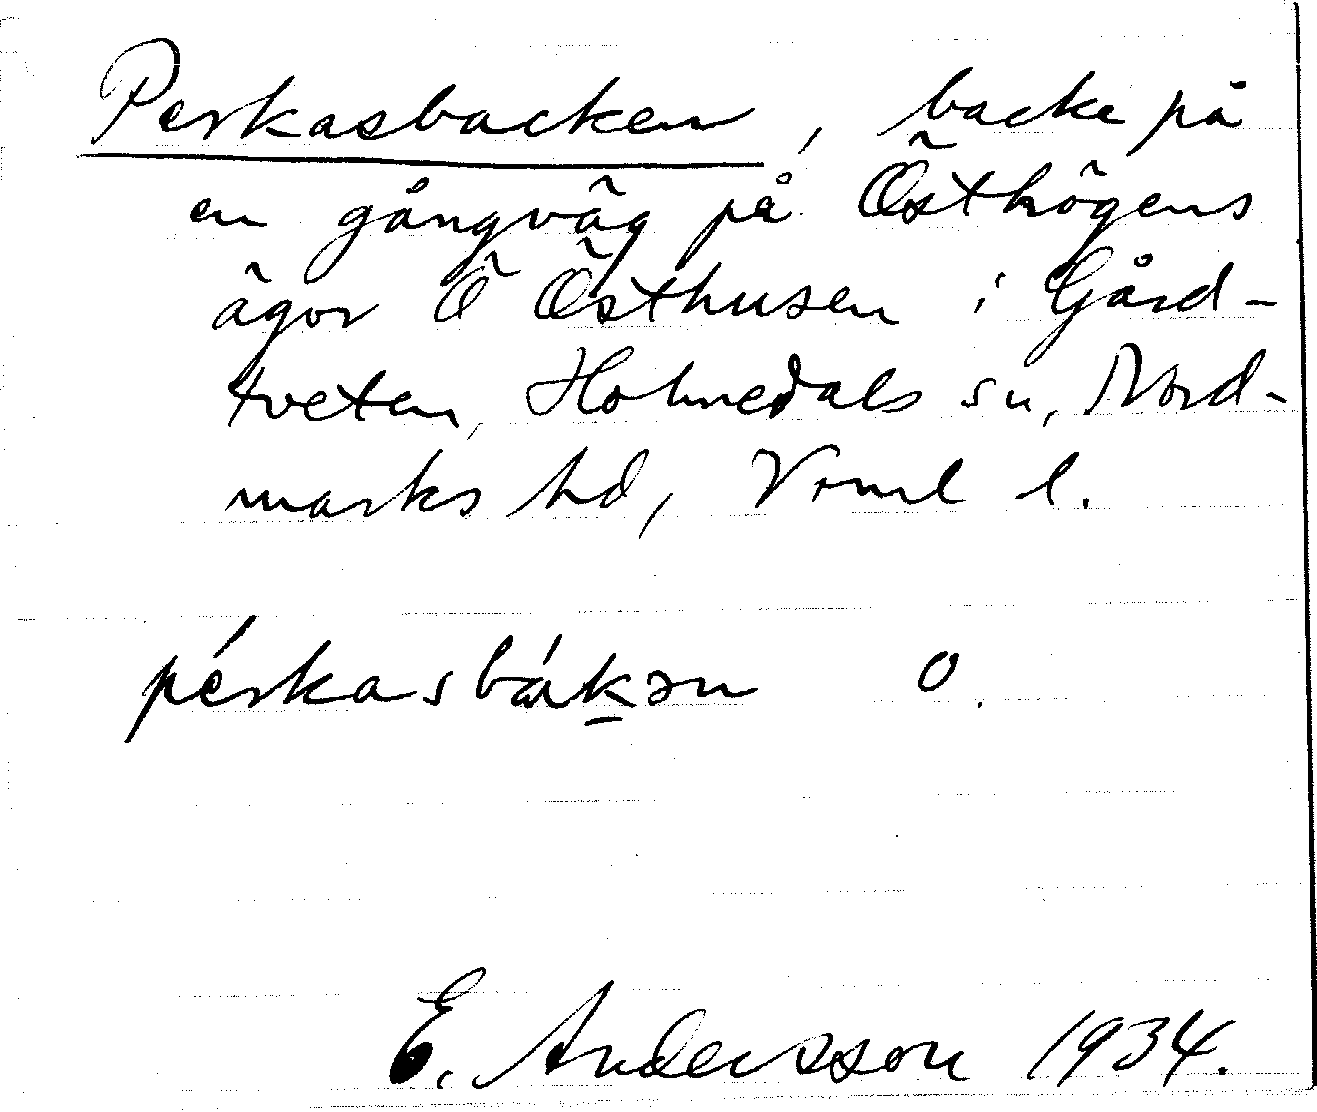 Perkasbacken, backe på
en gångväg på Östhögens
ägor Ö Östhusen i Gård-
tveten, Holmedals sn, Nord-
marks hd, Vrml l.
pérkasbákən o.
E. Andersson 1934.